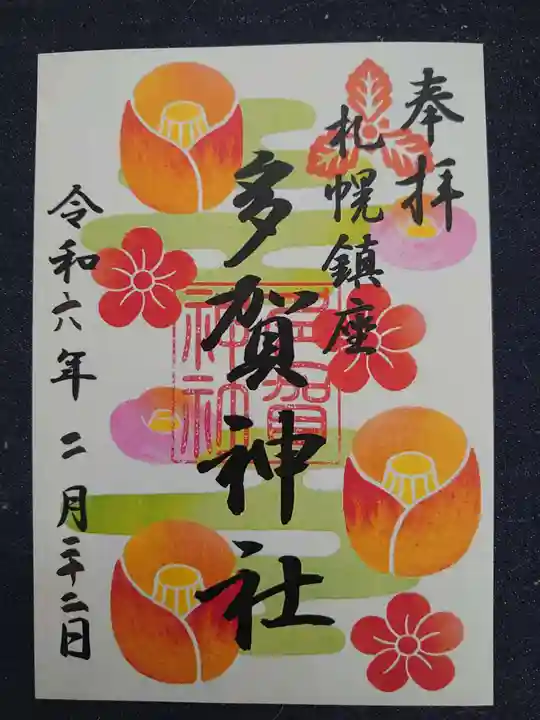 奉拝
札幌鎮座
多賀神社
多賀
神社
令和六年 二月二十二日